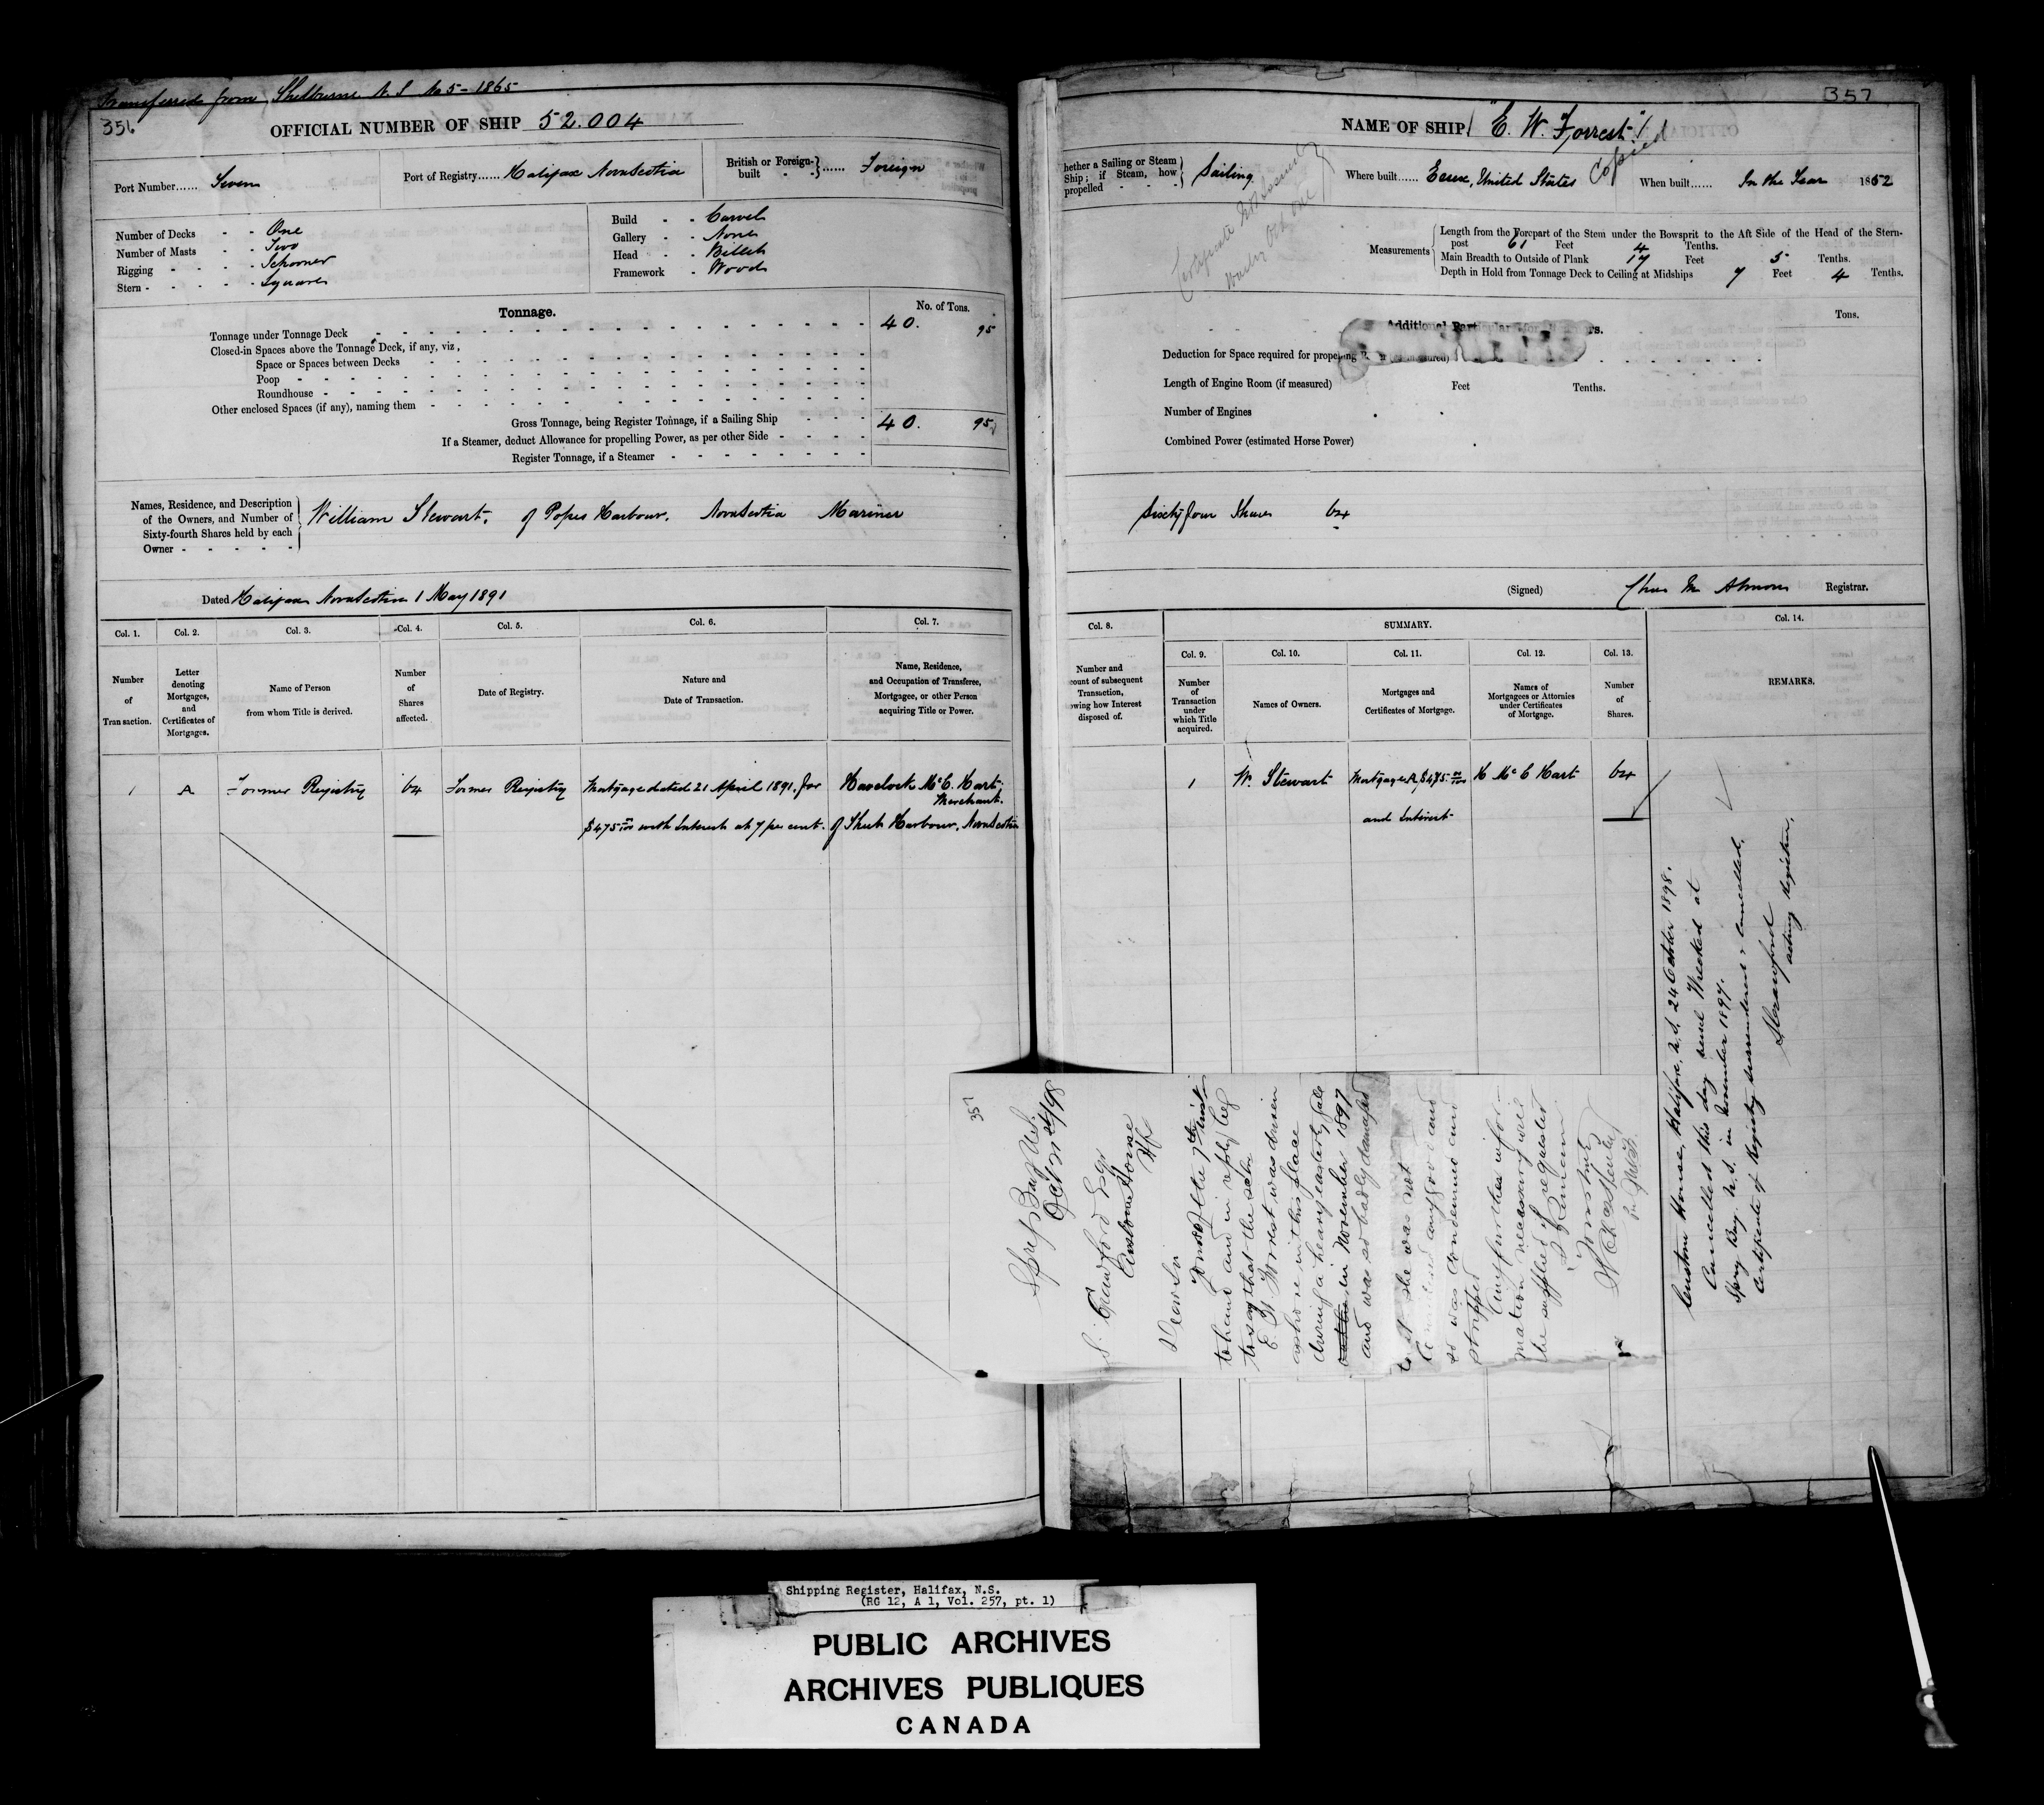 Transferred from Shelburne N.S No 5 - 1865
356
OFFICIAL NUMBER OF SHIP 52.004
Port Number...... Seven
Port of Registry...... Halifax Nova Scotia
British or Foreign-built - - } ...... Foreign
Number of Decks - - One
Number of Masts - - Two
Rigging - - - - Schooner
Stern - - - - - Square
Build - - Carvel
Gallery - - None
Head - - Billet
Framework - Wood
Tonnage.
No. of Tons.
Tonnage under Tonnage Deck 40. 95
Closed-in Spaces above the Tonnage Deck, if any, viz,
Space or Spaces between Decks
Poop
Roundhouse
Other enclosed Spaces (if any), naming them
Gross Tonnage, being Register Tonnage, if a Sailing Ship 40. 95
If a Steamer, deduct Allowance for propelling Power, as per other Side
Register Tonnage, if a Steamer
Names, Residence, and Description
of the Owners, and Number of
Sixty-fourth Shares held by each
Owner
William Stewart, of Popes Harbour, Nova Scotia Mariner
Dated Halifax Nova Scotia 1 May 1891
Col. 1. Col. 2. Col. 3. Col. 4. Col. 5. Col. 6. Col. 7.
Number of Transaction.
Letter denoting Mortgages, and Certificates of Mortgages.
Name of Person from whom Title is derived.
Number of Shares affected.
Date of Registry.
Nature and Date of Transaction.
Name, Residence, and Occupation of Transferee, Mortgagee, or other Person acquiring Title or Power.
1 A Former Registry 64 Former Registry Mortgage dated 21 April 1891. for Havelock McC. Hart,
Merchant.
$475 00/100 with Interest at 7 per cent. of Sheet Harbour, Nova Scotia
357
NAME OF SHIP "E. W. Forrest"
Copied
hether a Sailing or Steam
Ship; if Steam, how
propelled - - -
Sailing
Where built...... Essex, United States
When built...... In the Year 1852
Measurements
Length from the Forepart of the Stem under the Bowsprit to the Aft Side of the Head of the Stern-
post 61 Feet 4 Tenths.
Main Breadth to Outside of Plank 17 Feet 5 Tenths.
Depth in Hold from Tonnage Deck to Ceiling at Midships 7 Feet 4 Tenths.
Additional Particular for rs.
Tons.
Deduction for Space required for propelling (measured)
Length of Engine Room (if measured) Feet Tenths.
Number of Engines
Combined Power (estimated Horse Power)
Sixty four Shares 64
(Signed) Chas M Almon Registrar.
Col. 8.
SUMMARY.
Col. 14.
Col. 9. Col. 10. Col. 11. Col. 12. Col. 13.
Number and
count of subsequent
Transaction,
owing how Interest
disposed of.
Number of Transaction under which Title acquired.
Names of Owners.
Mortgages and Certificates of Mortgage.
Names of Mortgagees or Attornies under Certificates of Mortgage.
Number of Shares.
REMARKS.
1 W. Stewart Mortgage A $475 00/100 H McC Hart 64
and Interest
Custom House, Halifax, N.S. 24 October 1898.
Cancelled this day vessel Wrecked at
Spry Bay. N.S. in November 1897.
Certificate of Registry surrendered & cancelled.
Crawford
acting Registrar.
357
Spry Bay N.S.
Oct 24/98
Crawford Esqr
Custom House
Hfx
Dear Sir
Yours of the 7th inst
to hand and in reply beg
to say that the schr
E. W. Forrest was driven
ashore in this place
during a heavy easterly gale
in November 1897
and was so badly damaged
she was not
so was condemned and
stripped
Any further infor-
mation necessary will
be supplied if requested
I remain
Yours truly
Shipping Register, Halifax, N.S.
(RG 12, A 1, Vol. 257, pt. 1)
PUBLIC ARCHIVES
ARCHIVES PUBLIQUES
CANADA